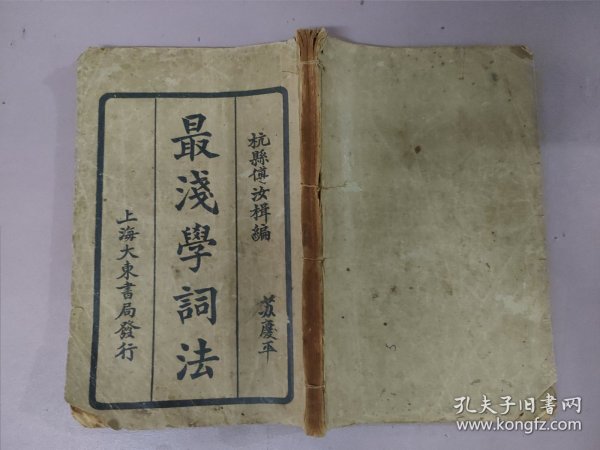 杭縣傅汝楫編
苏慶平
最淺學詞法
上海大東書局發行
5
孔夫子旧書网
www.kongfz.com